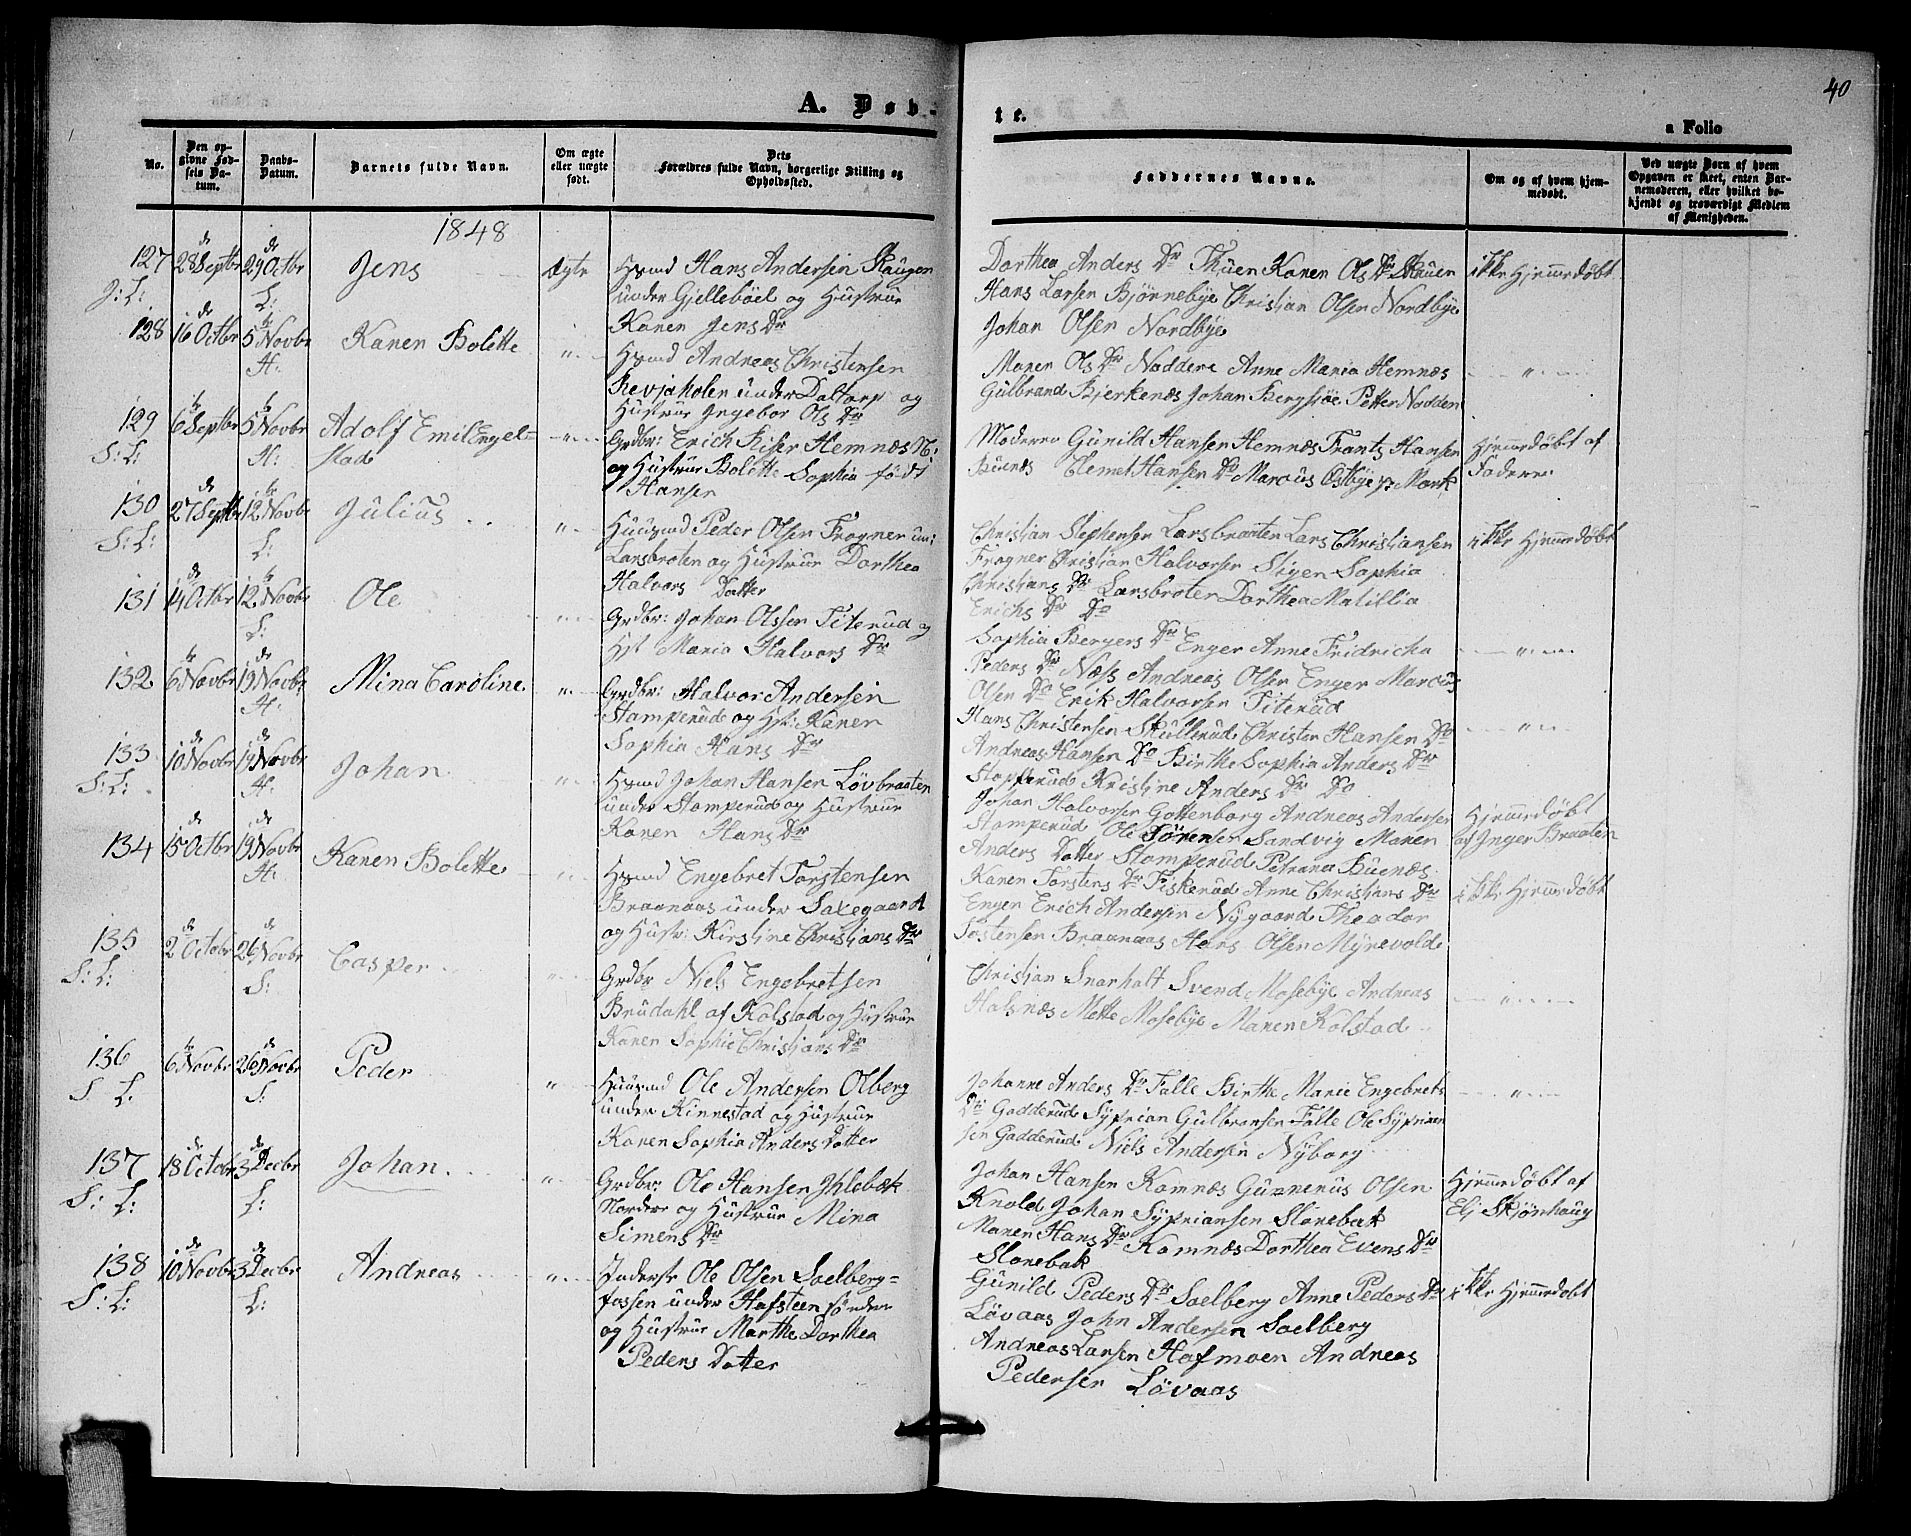 A. Døb-
te.
40
a Folio
No.
Den op-
givne Fød-
sels Da-
tum.
Daabs-
Datum.
Barnets fulde Navn.
Om ægte
eller uægte
født.
Dets
Forældres fulde Navn, borgerlige Stilling og
Opholdssted.
Faddernes Navne.
Om og af hvem hjem-
medøbt.
Ved uægte Børn af hvem
Opgaven er skeet, enten Bar-
nemoderen, eller hvilket be-
kjendt og troværdigt Medlem
af Menigheden.
1848
127
de
28 Septbr
de
29 Octbr
L:
Jens
Ægte
Hsmd Hans Andersen Haugen
under Gjelleböel og Hustrue
Karen Jens Dr
Dorthea Anders Dr Thuen Karen Ols Dr
Hans Larsen Bjørnebye Christian Olsen Nordbye
Johan Olsen Nordbye
ikke Hjemmedøbt
128
de
16 Octbr
te
5 Novbr
H:
Karen Bolette
"
Hsmd Andreas Christensen
Revjaholen under Daltorp og
Hustrue Ingebor Ols Dr
Maren Ols Dr Noddere Anne Maria Hemnæs
Gulbrand Bjerkenæs Johan Bergsjøe Petter Nodden
"
129
S: L:
te
6 Septbr
te
5 Novbr
H:
Adolf Emil Engel=
stad
"
Grdbr: Erich Riser Hemnæs N:
og Hustrue Bolette Sophia født
Hansen
Moderen Gunild Hansen Hemnæs Frants Hansen
Buenæs Clemet Hansen Do Marcus Ostbye
Hjemmedøbt af
Faderen
130
S: L:
de
27 Septbr
te
12 Novbr
L:
Julius
"
Huusmd Peder Olsen Frogner un:
Larsbroten og Hustrue Dorthea
Halvors Datter
Christian Stephensen Larsbraaten Lars Christiansen
Frogner Christian Halvorsen Stigen Sophia
Christians Dr Larsbroten Dorthea Matillia
Erichs Dr Do
ikke Hjemmedøbt
131
de
14 Octbr
te
12 Novbr
L:
Ole
"
Grdbr: Johan Olssen Titerud og
Hst Maria Halvors Dr
Sophia Bergers Dr Enger Anne Fridricha
Peders Dr Næss Andreas Olsen Enger Marcus
Olsen Do Erik Halvorsen Titerud
"
132
te
6 Novbr
de
19 Novbr
H:
Mina Caroline
"
Grdbr: Halvor Andersen
Stamperud og Hst: Karen
Sophia Hans Dr
Hans Christensen Skullerud Christen Hansen Do
Andreas Hansen Do Birthe Sophia Anders Dr
Stopperud Kristine Anders Dr Do
"
133
S: L:
de
10 Novbr
de
19 Novbr
H:
Johan
"
Hsmd Johan Hansen Løvbraaten
under Stamperud og Hustrue
Karen Hans Dr
Johan Halvorsen Gottenborg Andreas Andersen
Stamperud Ole Sørensen Sandvig Maren
Anders Datter Stamperud Petrana Buenæs
Hjemmedøbt
af Inger Braaten
134
de
15 Octbr
de
19 Novbr
H:
Karen Bolette
"
Hsmd Engebret Torstensen
Braanaas under Saxegaard
og Hustr: Kirstine Christians Dr
Karen Torstens Dr Fiskerud Anne Christians Dr
Enger Erich Andersen Nygaard Theador
Tostensen Braanaas Hans Olsen Myrevolde
ikke Hjemmedøbt
135
S: L:
de
2 Octobr
de
26 Novbr
S:
Casper
"
Grdbr Niels Engebretsen
Brudahl af Kolstad og Hustrue
Karen Sophie Christians Dr
Christian Snarholt Svend Mosebye Andreas
Halsnæs Mette Mosebye Maren Kolstad
"
136
S L:
te
6 Novbr
de
26 Novbr
S:
Peder
"
Huusmd Ole Andersen Olberg
under Kinnestad og Hustrue
Karen Sophia Anders Datter
Johanne Anders Dr Falle Birthe Marie Engebrets
Dr Gadderud Syprian Gulbransen Falle Ole Syprian
sen Gadderud Niels Andersen Nyborg
"
137
S: L:
de
18 Octobr
de
3 Decbr
L:
Johan
"
Grdbr: Ole Hansen Ihlebæk
Nordere og Hustrue Mina
Simens Dr
Johan Hansen Komnæs Gunnerus Olsen
Knold Johan Syprianssen Slorebak
Maren Hans Dr Komnæs Dorthea Evens Dr
Slorebak
Hjemmedøbt af
Elj Skjønhaug
138
S: L:
de
10 Novbr
de
3 Decbr
L:
Andreas
"
Inderst Ole Olsen Soelberg=
fossen under Hafsteen søndre
og Hustrue Marthe Dorthea
Peders Datter
Gunild Peders Dr Soelberg Anne Peders Dr
Løvaas John Andersen Soelberg
Andreas Larsen Hafmoen Andreas
Pedersen Løvaas
ikke Hjemmedøbt